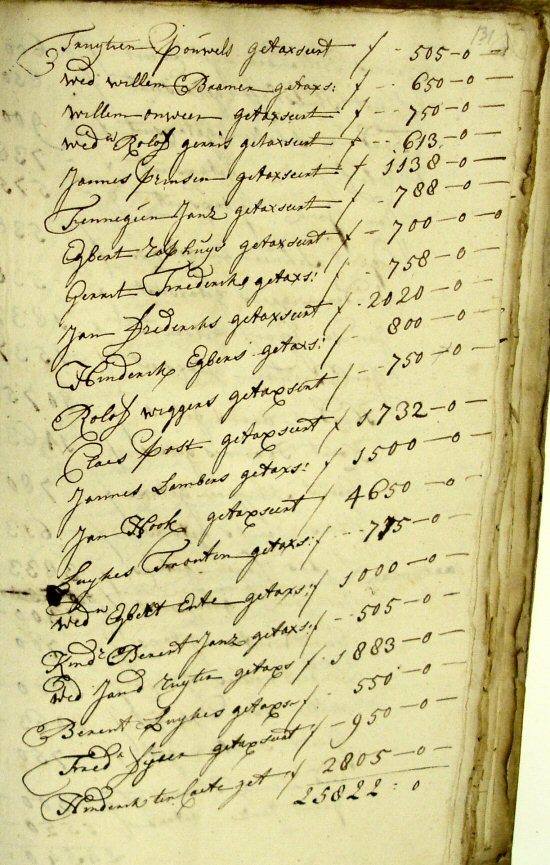 131
Truytien Pouwels getaxeert f - 505-0-
Wed willem Baamen getaxs: f - 650-0-
willem onweer getaxeert f - 750-0-
wed Rolof gerris getaxeert f - 613-0-
Jannes Prinsen getaxeert f 1138-0-
Fennegien Janz getaxeert f - 788-0-
Egbert getaxseert f - 700-0-0
Gerrit Frederiks getaxs: f - 758-0-
Jan Frederiks getaxseert f 2020-0-
Hinderick Egbers getaxs: f - 800-0-
Rolof wiggers getaxseert f - 750-0-
Claes Post getaxseert f 1732-0-
Jannes Lambers getaxs: f 1500-0-
Jan Kook getaxseert f 4650-0-
Luykes getaxs: f - 775-0-
Wed Egbert Ente getaxs: f 1000-0-
Kindr Berent Janz getaxs: f - 505-0-
Wed Jand getaxs f 1883-0-
Berent Luykes getaxs f - 550-0-
Fred getaxseert f - 950-0-
Hinderick ten Caete get f 2805-0-
25822:0